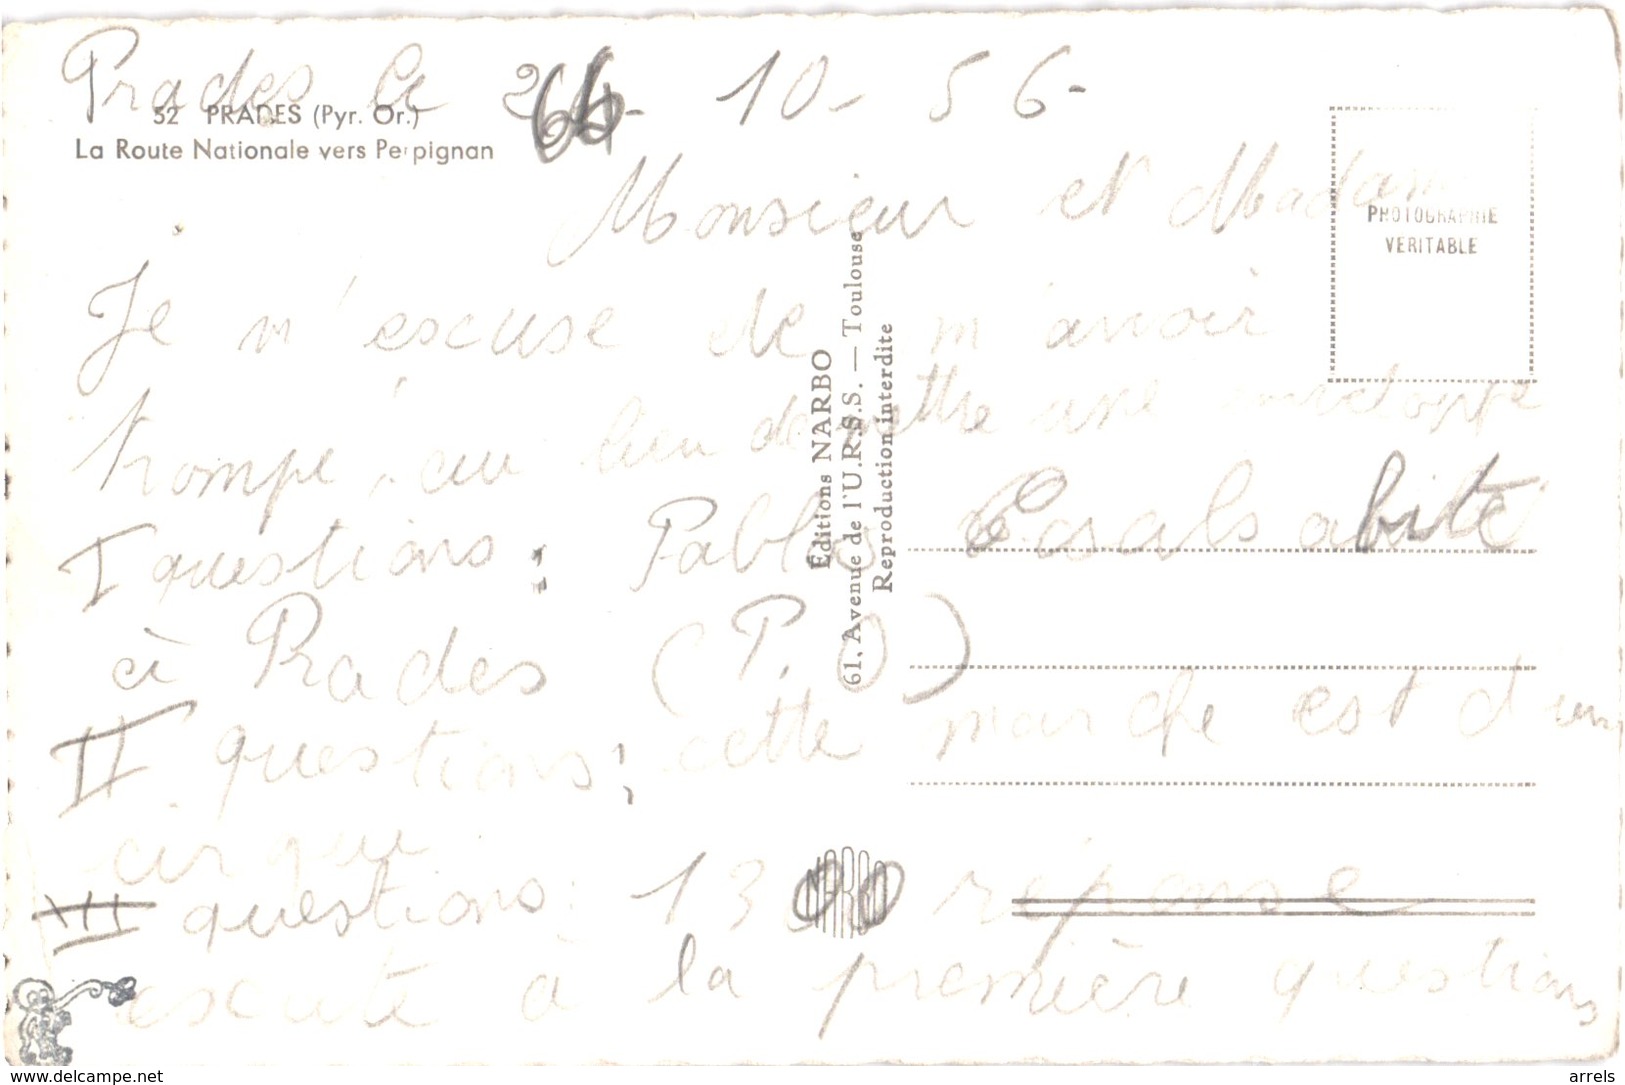 Prades le 26- 10- 56-
52 PRADES (Pyr. Or.)
La Route Nationale vers Perpignan
Monsieur et Madam
PHOTOGRAPHIE
VERITABLE
Je m'escuse de m'avoir
trompé, au lieu de mettre une enveloppe
I questions : Pablos Casals abite
à Prades (P. O)
II questions : cette marche est d'un
cirque
III questions : 1300 réponse
escute à la première questions
Éditions NARBO
61, Avenue de l'U.R.S.S. — Toulouse
Reproduction interdite
NARBO
www.delcampe.net
arrels